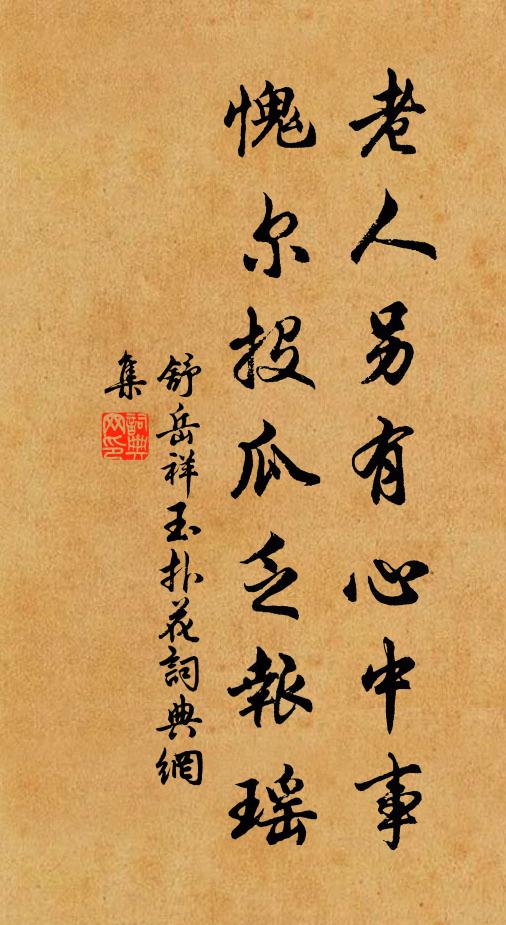 老人另有心中事
愧尔投瓜乏報瑶
舒岳祥玉扑花詞典網
集
詞典网印